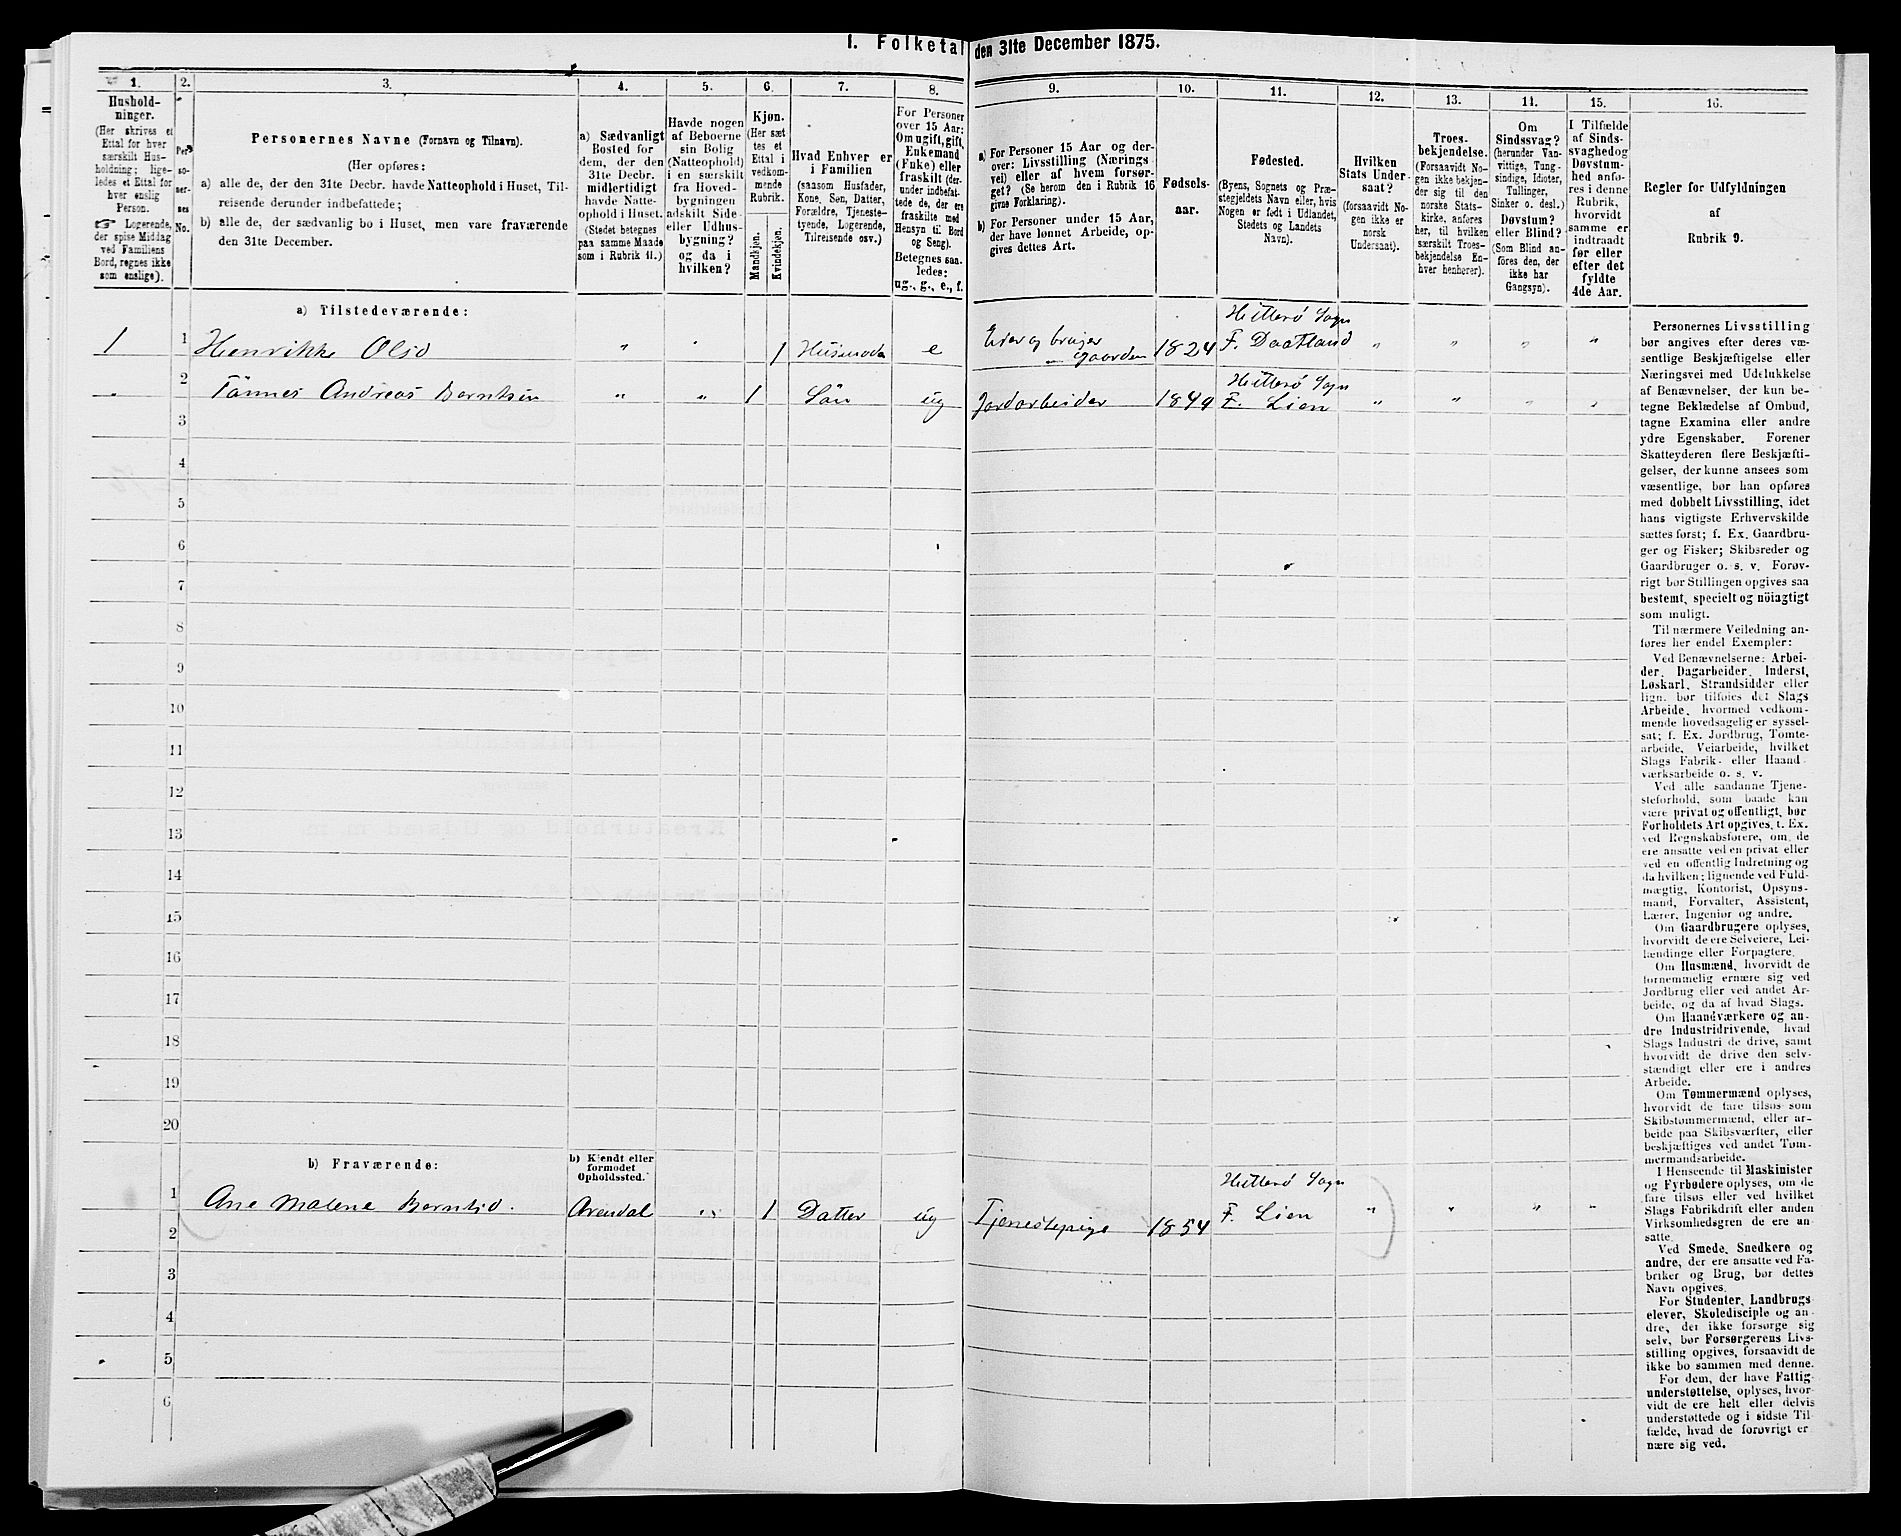 I. Folketal den 31te December 1875.
1.
2.
3.
4.
5.
6.
7.
8.
9.
10.
11.
12.
13.
14.
15.
16.
Hushold-
ninger.
(Her skrives et
Ettal for hver
særskilt Hus-
holdning; lige-
ledes et Ettal for
hver enslig
Person.
☞ Logerende,
der spise Middag
ved Familiens
Bord, regnes ikke
som enslige).
Per
so-
ner-
nes
No.
Personernes Navne (Fornavn og Tilnavn).
(Her opføres:
a) alle de, der den 31te Decbr. havde Natteophold i Huset, Til-
reisende derunder indbefattede;
b) alle de, der sædvanlig bo i Huset, men vare fraværende
den 31te December.
a) Sædvanligt
Bosted for
dem, der den
31te Decbr.
midlertidigt
havde Natte-
ophold i Huset.
(Stedet betegnes
paa samme Maade
som i Rubrik 11.)
Havde nogen
af Beboerne
sin Bolig
(Natteophold)
i en særskilt
fra Hoved-
bygningen
adskilt Side-
eller Udhus-
bygning?
og da i
hvilken?
Kjøn.
(Her sæt
tes et
Ettal i
vedkom-
mende
Rubrik.
Mandkjøn.
Kvindekjøn.
Hvad Enhver er
i Familien
(saasom Husfader,
Kone, Søn, Datter,
Forældre, Tjeneste-
tyende, Logerende,
Tilreisende osv.)
For Personer
over 15 Aar:
Om ugift, gift,
Enkemand
(Enke) eller
fraskilt (der-
under indbefat-
tede de, der ere
fraskilte med
Hensyn til Bord
og Seng).
Betegnes saa-
ledes:
ug., g., e., f.
a) For Personer 15 Aar og der-
over: Livsstilling (Nærings
vei) eller af hvem forsør-
get? (Se herom den i Rubrik 16
givne Forklaring).
b) For Personer under 15 Aar,
der have lønnet Arbeide, op-
gives dettes Art.
Fødsels-
aar.
Fødested.
(Byens, Sognets og Præ-
stegjeldets Navn eller, hvis
Nogen er født i Udlandet,
Stedets og Landets
Navn).
Hvilken
Stats Under-
saat?
(forsaavidt No-
gen ikke er
norsk
Undersaat).
Troes-
bekjendelse.
(Forsaavidt No-
gen ikke bekjen-
der sig til den
norske Stats-
kirke, anføres
her, til hvilken
særskilt Troes-
bekjendelse En-
hver henhører).
Om
Sindssvag?
(herunder Van-
vittige, Tung-
sindige, Idioter,
Tullinger,
Sinker o. desl.)
Døvstum?
eller Blind?
(Som Blind an-
føres den, der
ikke har
Gangsyn).
I Tilfælde
af Sinds-
svaghed og
Døvstum-
hed anfø-
res i denne
Rubrik,
hvorvidt
samme er
indtraadt
før eller
efter det
fyldte
4de Aar.
Regler for Udfyldningen
af
Rubrik 9.
a) Tilstedeværende:
Hitterø Sogn
1 1 Henrikke Olsd " " 1 Husmoder e Eier og bruger gaarden 1824 F. Daatland " " " "
Hitterø Sogn
" 2 Tönnes Andreas Berntsen " " 1 Sön ug Jordarbeider 1849 F. Lien " " " "
3
4
5
6
7
8
9
10
11
12
13
14
15
16
17
18
19
20
b) Fraværende:
b) Kjendt eller
formodet
Opholdssted.
Hitterø Sogn
1 Ane Malene Berntsd. Arendal " 1 Datter ug Tjenestepige 1854 F. Lien " " " "
2
3
4
5
6
Personernes Livsstilling
bør angives efter deres væ-
sentlige Beskjæftigelse eller
Næringsvei med Udelukkelse
af Benævnelser, der kun be-
tegne Beklædelse af Ombud,
tagne Examina eller andre
ydre Egenskaber. Forener
Skatteyderen flere Beskjæfti-
gelser, der kunne ansees som
væsentlige, bør han opføres
med dobbelt Livsstilling, idet
hans vigtigste Erhvervskilde
sættes først; f. Ex. Gaardbru-
ger og Fisker; Skibsreder og
Gaardbruger o. s. v. Forøv-
rigt bør Stillingen opgives saa
bestemt, specielt og nöiagtigt
som muligt.
Til nærmere Veiledning an-
føres her endel Exempler:
Ved Benævnelserne: Arbei-
der, Dagarbeider, Inderst,
Løskarl, Strandsidder eller
lign. bør tilføies det Slags
Arbeide, hvormed vedkom-
mende hovedsagelig er syssel-
sat; f. Ex. Jordbrug, Tomte-
arbeide, Veiarbeide, hvilket
Slags Fabrik- eller Haand
værksarbeide o. s. v.
Ved alle saadanne Tjene-
steforhold, som baade kan
være privat og offentligt, bør
Forholdets Art opgives, t. Ex.
ved Regnskabsførere, om de
ere ansatte ved en privat eller
ved en offentlig Indretning og
da hvilken; lignende ved Fuld-
mægtig, Kontorist, Opsyns-
mand, Forvalter, Assistent,
Lærer, Ingeniør og andre.
Om Gaardbrugere oplyses,
hvorvidt de ere Selveiere, Lei-
lændinge eller Forpagtere.
Om Husmænd, hvorvidt de
fornemmelig ernære sig ved
Jordbrug eller ved andet Ar-
beide, og da af hvad Slags.
Om Haandværkere og an-
dre Industridrivende, hvad
Slags Industri de drive, samt
hvorvidt de drive den selv-
stændigt eller ere i andres
Arbeide.
Om Tømmermænd oplyses,
hvorvidt de fare tilsøs som
Skibstømmermænd, eller ar-
beide paa Skibsværfter, eller
beskjæftiges ved andet Tøm-
mermandsarbeide.
I Henseende til Maskinister
og Fyrbødere oplyses, om de
fare tilsøs eller ved hvilket
Slags Fabrikdrift eller anden
Virksomhedsgren de ere an-
satte.
Ved Smede, Snedkere og
andre, der ere ansatte ved Fa-
briker og Brug, bør dettes
Navn opgives.
For Studenter, Landbrugs-
elever, Skoledisciple og an-
dre, der ikke forsørge sig
selv, bør Forsørgerens Livs-
stilling opgives, forsaavidt de
ikke bo sammen med denne.
For dem, der have Fattig-
understøttelse, oplyses, hvor-
vidt de ere helt eller delvis
understøttede og i sidste Til-
fælde, hvad de forøvrigt er-
nære sig ved.